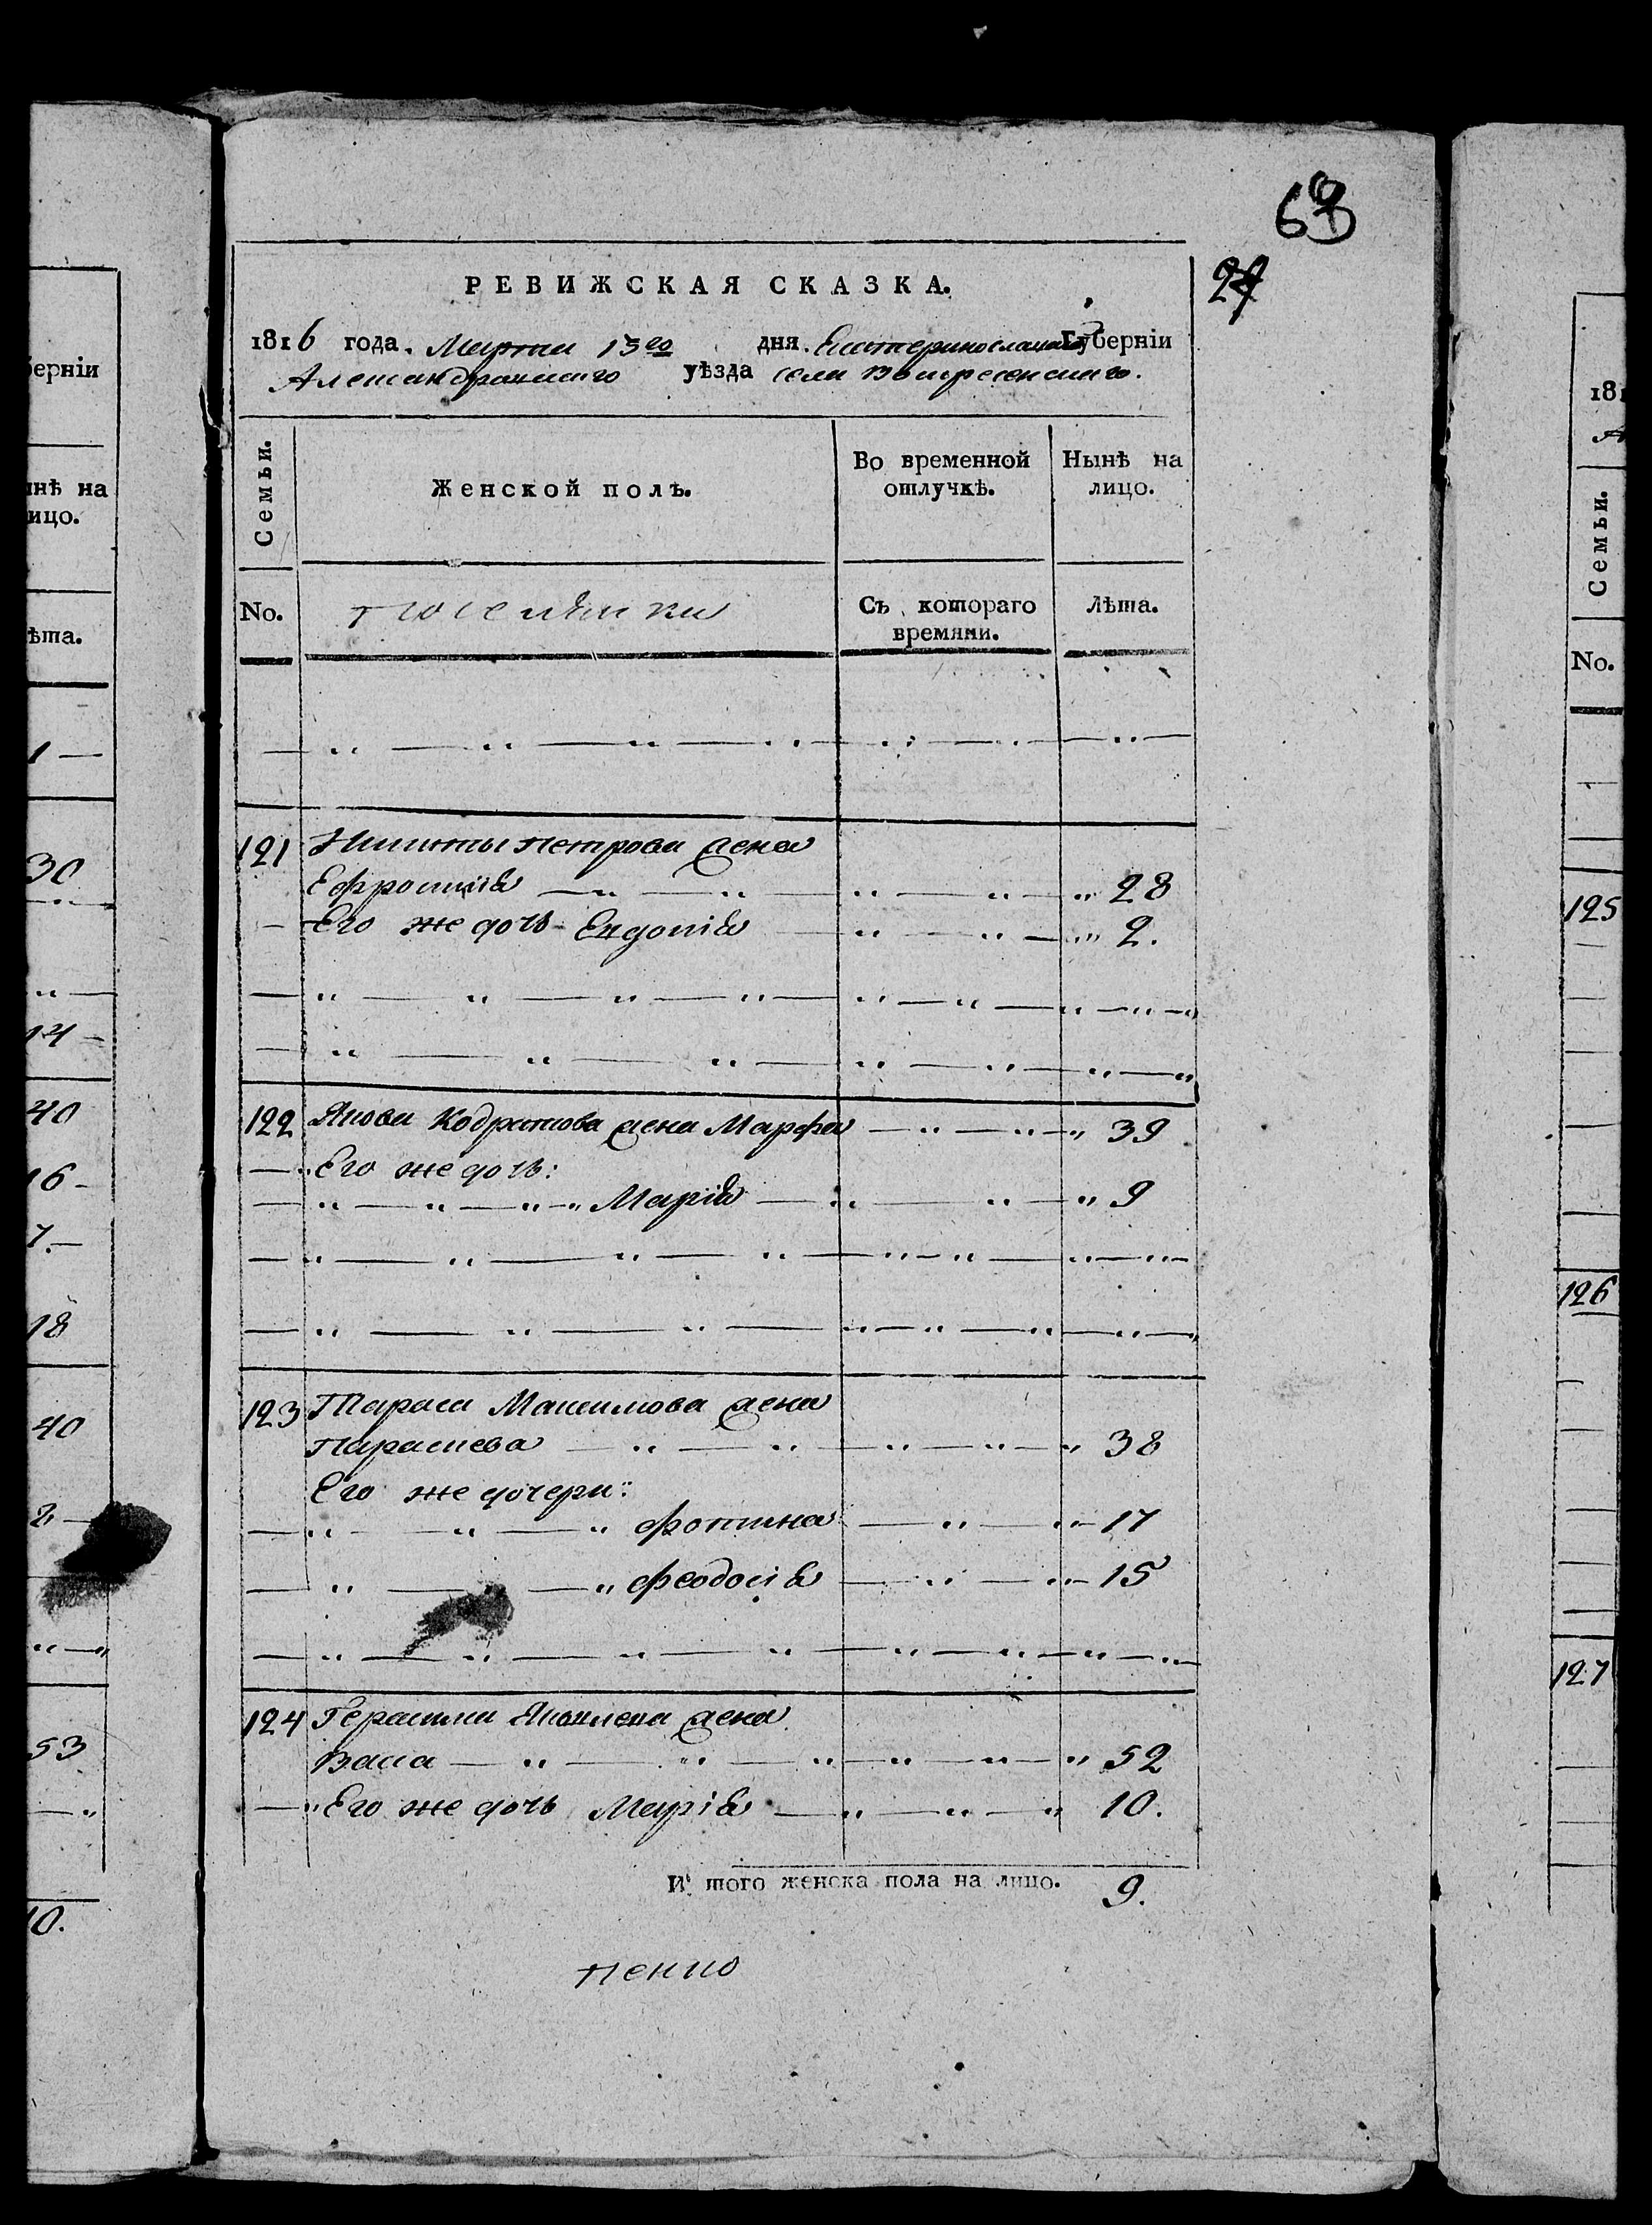 69
27
РЕВИЖСКАЯ СКАЗКА.
1816 года. Марта 13го дня. Екатеринославской Губерніи
Александровскаго уѣзда села Воскресенскаго.
Семьи.
Женской полъ.
Во временной отлучкѣ.
Нынѣ на лицо.
No.
поселянки
Съ котораго времяни.
Лѣта.
121 Никиты Петрова жена
Ефросинія 28
Его же дочь Евдокія 2.
122 Якова Кодратова жена Марфа 39
Его же дочь:
Марія 9
123 Тараса Максимова жена
Параскева 38
Его же дочери:
Фотина 17
Феодосія 15
124 Герасима Яковлева жена
Васса 52
Его же дочь Марія 10.
И того женска пола на лицо. 9.
берніи
инѣ на
ицо.
ѣта.
1
30
14
40
16
7.
18
40
2
53
10.
181
А
Семьи.
No.
125
126
127